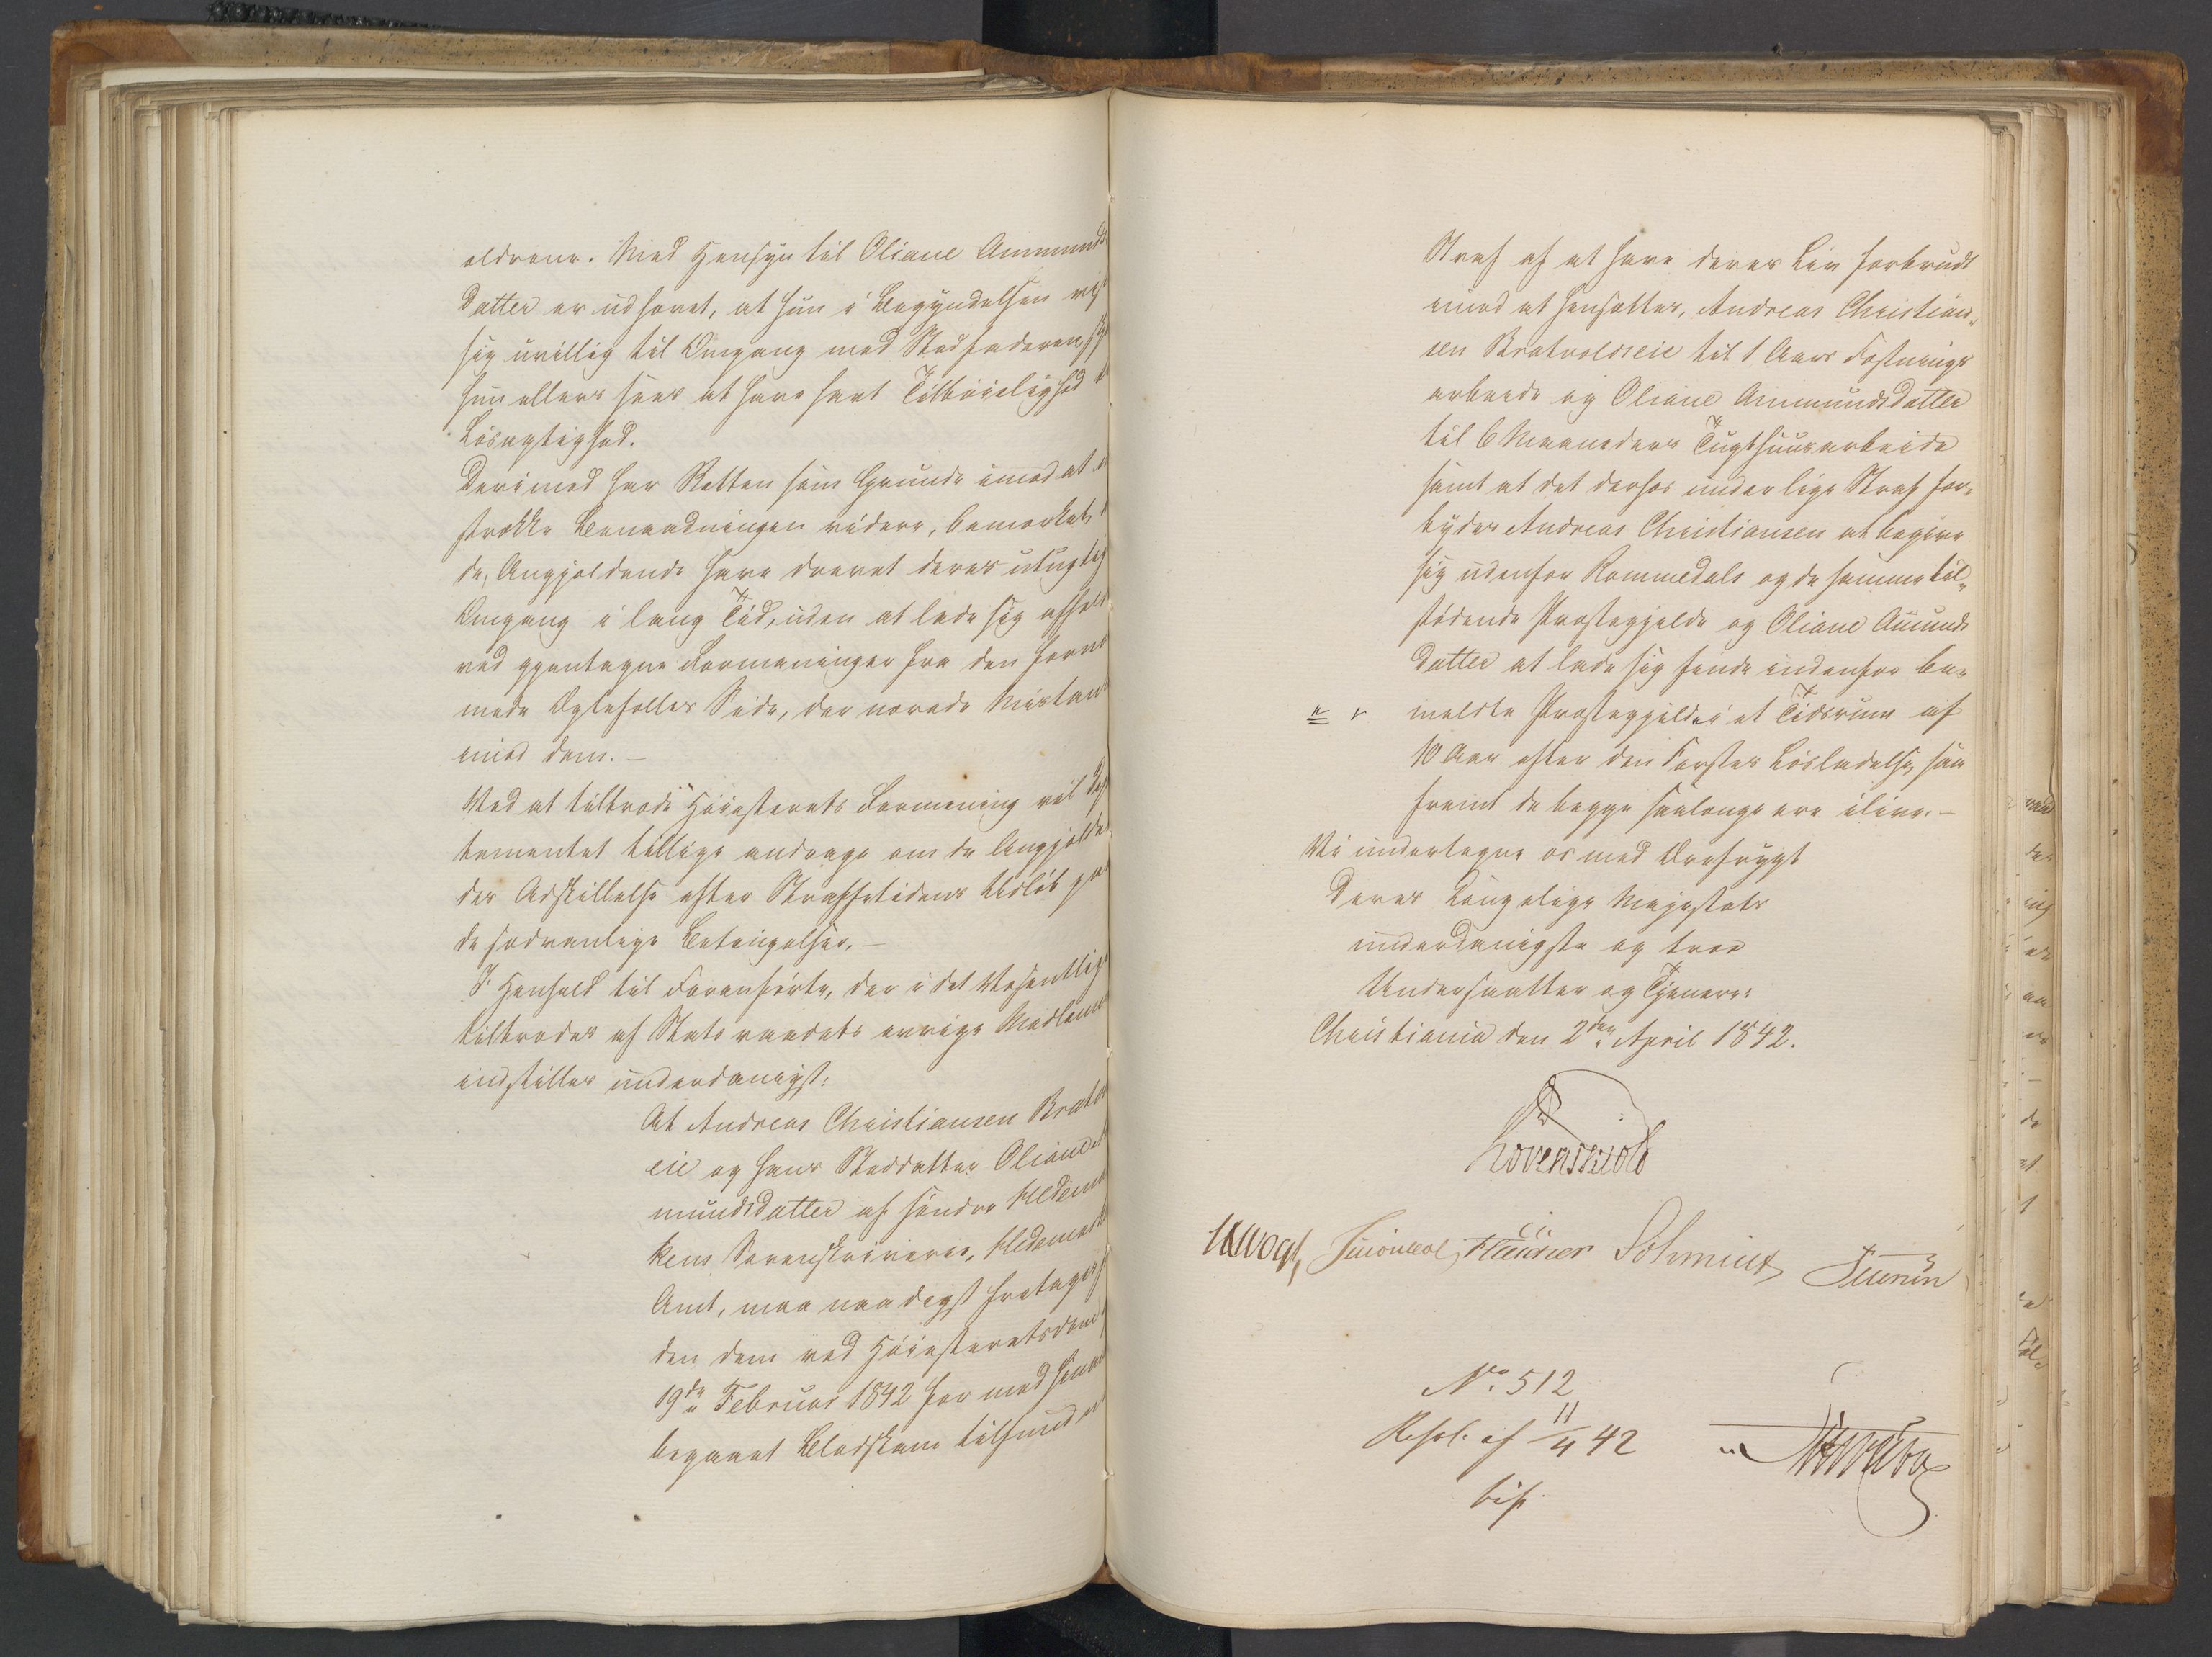 ældrene. Med Hensyn til Oliane Ammunds
Datter er udhævet, at hun i Begyndelsen vist
sig uvillig til Omgang med Stedfaderen,
hun ellers sees at have havt Tilböielighed
Lösagtighed.
Derimod har Retten som Grunde imod at
strække Benaadningen videre, bemærket
de Angjældende have drevet deres utugtig
Omgang i lang Tid, uden at lade sig afhold
ved gjentagne Formaninger fra den fornær
mede Ægtefælles Side, der nærede Mistanke
imod dem. —
Ved at tiltræde Höiesterets Formening vil Dep
tementet tillige andrage om de Angjælden
des Adskillelse efter Straffetidens Udlöb paa
de sædvanlige Betingelser. —
I Henhold til Foranförte, der i det Væsentlige
tiltrædes af Statsraadets övrige Medlemmer
indstilles underdanigst:
At Andreas Christiansen Bratv
eie og hans Steddatter Oliane A
mundsdatter af söndre Hedema
kens Sorenskriverie, Hedemark
Amt, maa naadigst fritages
den dem ved Höiesteretsdom
19de Februar 1842 for med hina
begaaet Blodskam tilfundne
Straf af at have deres Liv forbrudt
imod at hensættes, Andreas Christian-
sen Bratvoldseie til 1 Aars Fæstnings
arbeide og Oliane Ammundsdatter
til 6 Maaneders Tugthuusarbeide
samt at det derhos under lige Straf for-
bydes Andreas Christiansen at begive
sig udenfor Rommedals og de samme til-
stödende Præstegjelde og Oliane Amunds
datter at lade sig finde indenfor be-
meldte Præstegjelde i et Tidsrum af
10 Aar efter den Förstes Lösladelse, saa
fremt de begge saalænge ere ilive. —
Vi undertegne os med Ærefrygt
Deres Kongelige Majestæts
underdanigste og troe
Undersaatter og Tjenere:
Christiania den 2den April 1842.
Lövenskiold
Vogt, Fleischer Schmidt
No. 512
Resol. af 11/4 42
bif.